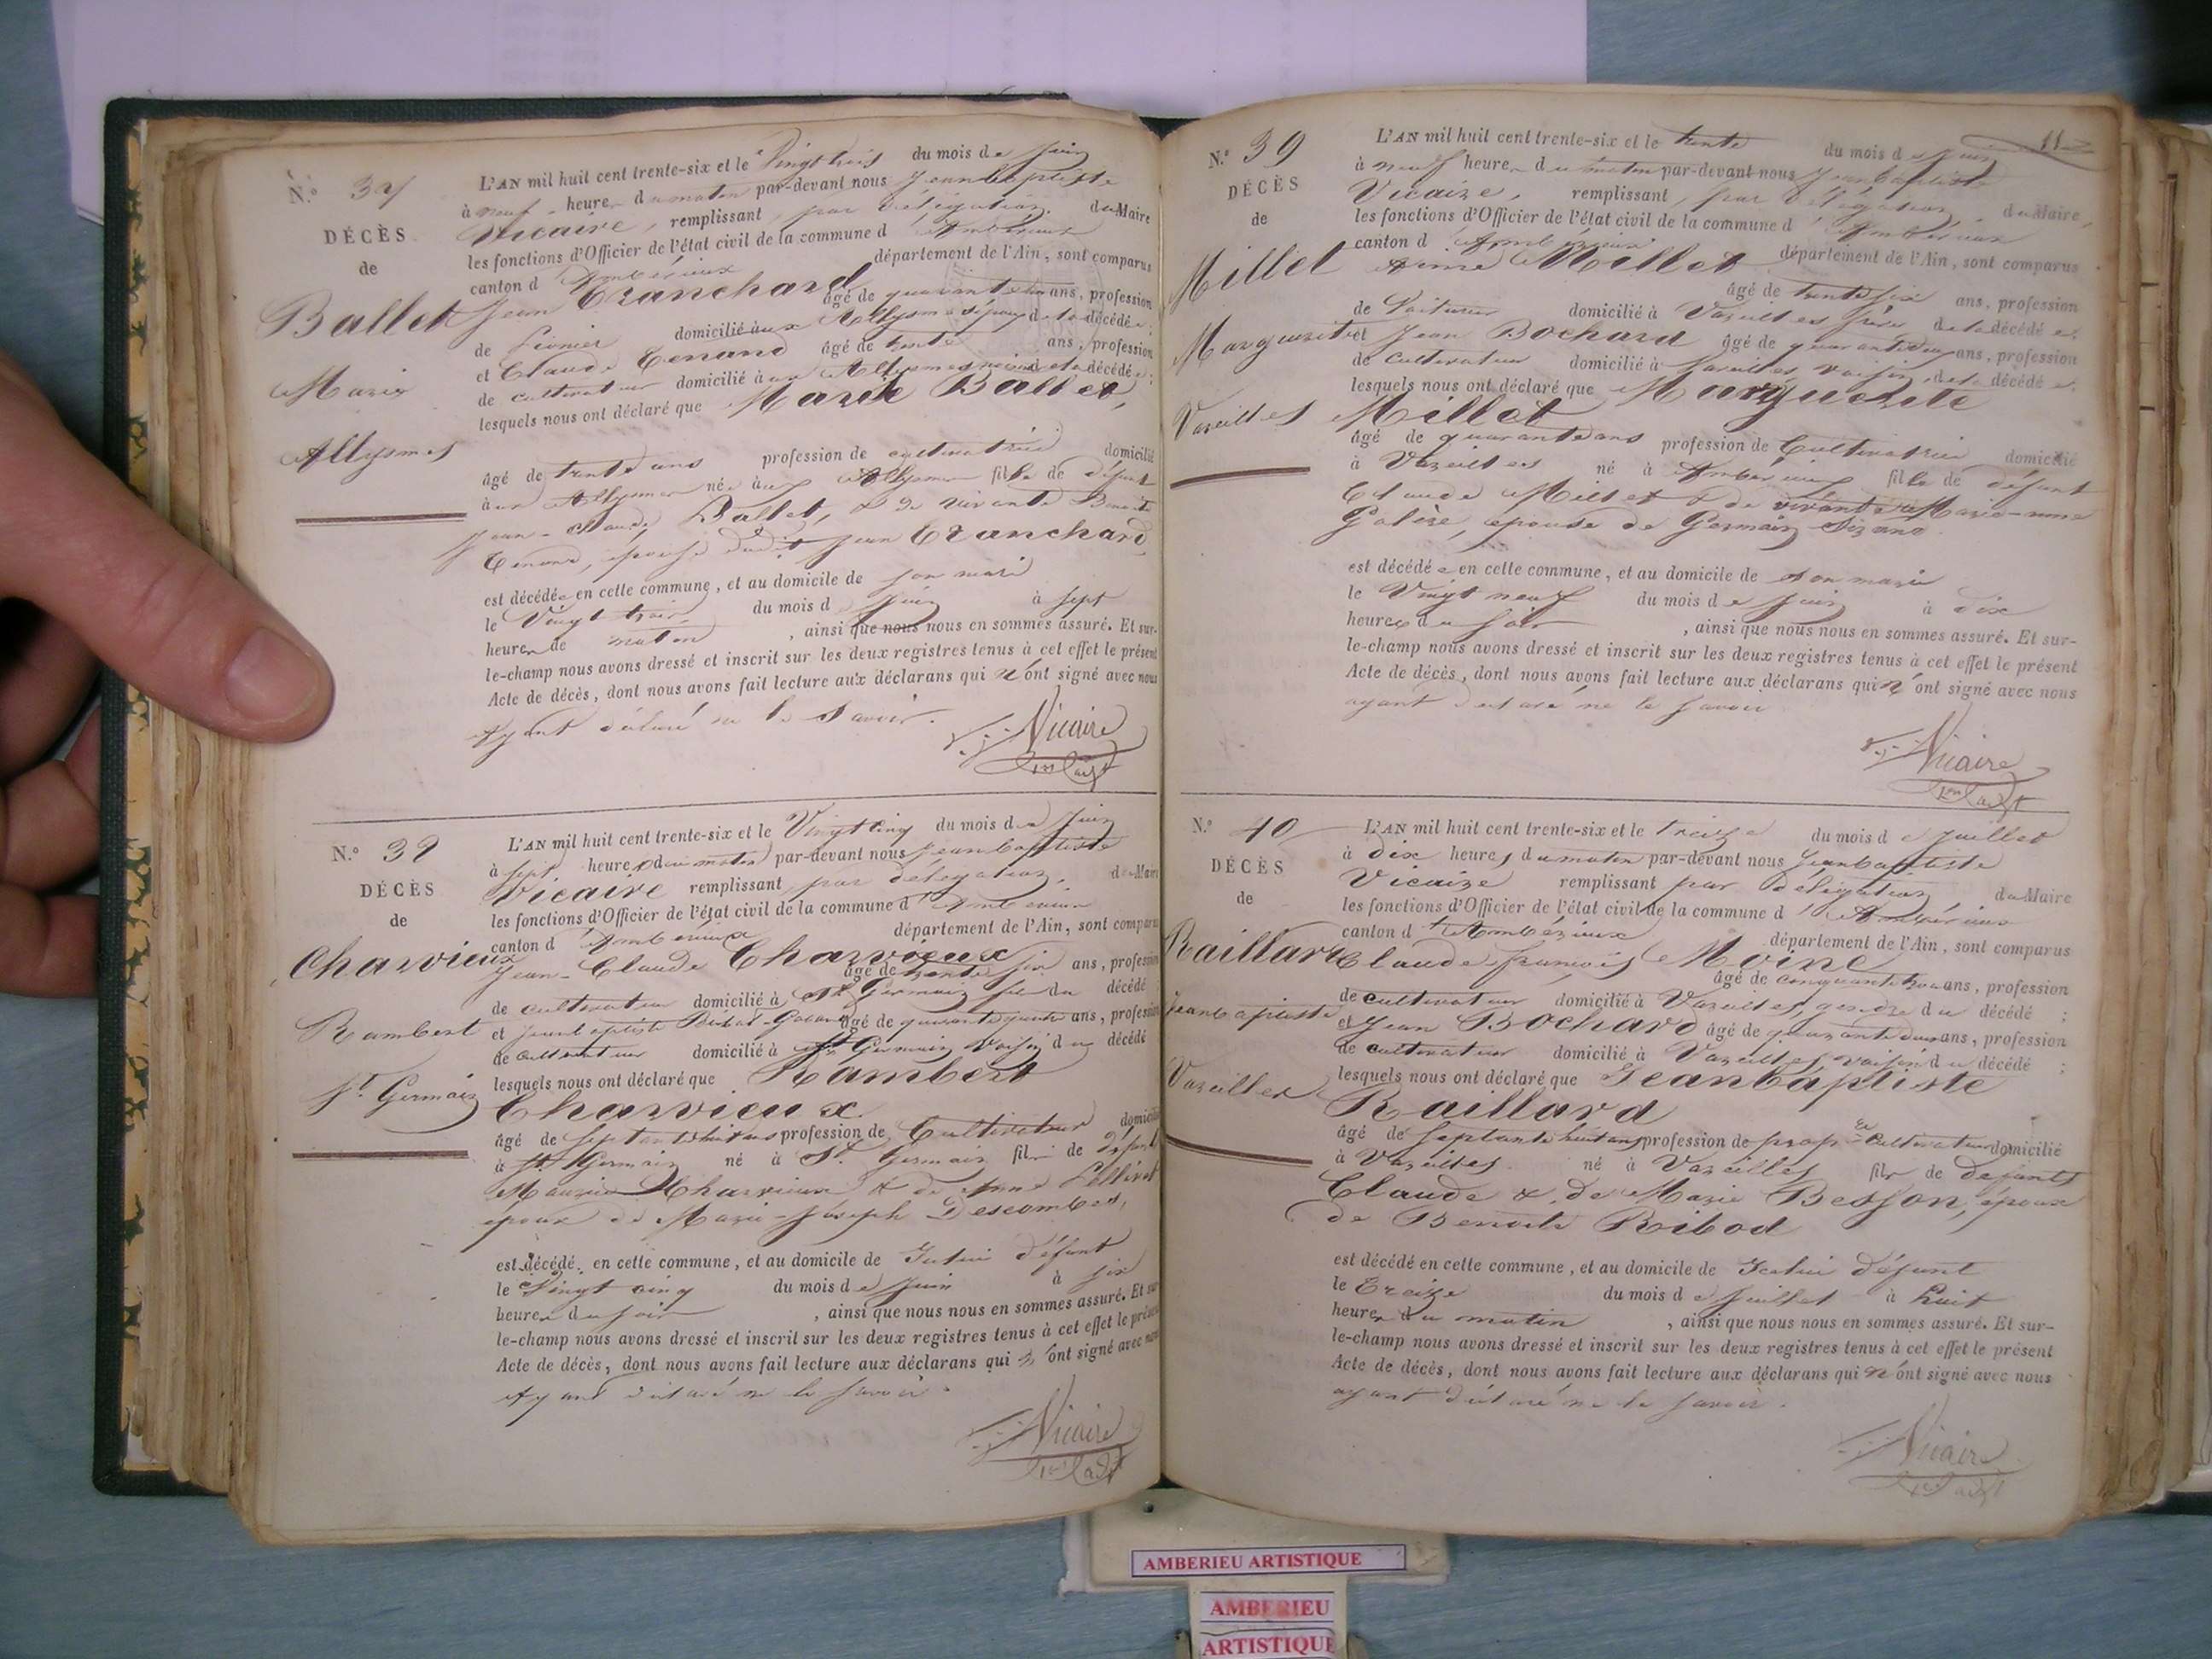 N.° 37
DÉCÈS
de
Ballet
Marie
Allysmes
L'AN mil huit cent trente-six et le Vingt trois du mois de juin
à neuf heures du matin par-devant nous Jean baptiste
Vicaire, remplissant, par délégation du Maire
les fonctions d'Officier de l'état civil de la commune d'Ambérieux
canton d'Ambérieux département de l'Ain, sont comparus
Jean Tranchard âgé de ans, profession
de domicilié aux Allysmes époux de la décédée;
et Claude Tenand âgé de trente ans, profession
de cultivateur domicilié aux Allymes de la décédée;
lesquels nous ont déclaré que Marie Ballet,
âgé de trente ans profession de cultivatrice domicilié
aux Allysmes née aux Allysmes fille de défunt
Jean-Claude Ballet, & de vivante Benoite
Tenand, épouse dudit Jean Tranchard
est décédée en cette commune, et au domicile de son mari
le Vingt trois du mois de juin à sept
heures de matin, ainsi que nous nous en sommes assuré. Et sur-
le-champ nous avons dressé et inscrit sur les deux registres tenus à cet effet le présent
Acte de décès, dont nous avons fait lecture aux déclarans qui n'ont signé avec nous
Ayant déclaré ne le savoir.
Vicaire
N.° 38
DÉCÈS
de
Charvieux
Rambert
St. Germain
L'AN mil huit cent trente-six et le Vingt cinq du mois de juin
à sept heures du matin par-devant nous Jean baptiste
Vicaire remplissant, par délégation, du Maire
les fonctions d'Officier de l'état civil de la commune d'Ambérieux
canton d'Ambérieux département de l'Ain, sont comparus
Jean-Claude Charvieux âgé de trente six ans, profession
de cultivateur domicilié à St Germain fils du décédé
et Jean baptiste âgé de quarante quatre ans, profession
de cultivateur domicilié à St Germain voisin du décédé
lesquels nous ont déclaré que Rambert
Charvieux
âgé de septante huit ans profession de Cultivateur domicilié
à St. Germain né à St. Germain fils de défunt
Maurice Charvieux & de Anne
époux de Marie-Joseph Descombes,
est décédé en cette commune, et au domicile de Icelui défunt
le Vingt cinq du mois de juin à six
heures du soir, ainsi que nous nous en sommes assuré. Et sur
le-champ nous avons dressé et inscrit sur les deux registres tenus à cet effet le présent
Acte de décès, dont nous avons fait lecture aux déclarans qui n'ont signé avec nous
Ayant déclaré ne le savoir.
Vicaire
N.° 39
DÉCÈS
de
Millet
Marguerite
Vareilles
L'AN mil huit cent trente-six et le trente du mois de juin
à neuf heures du matin par-devant nous Jean baptiste
Vicaire, remplissant, par délégation, du Maire,
les fonctions d'Officier de l'état civil de la commune d'Ambérieux
canton d'Ambérieux département de l'Ain, sont comparus
Aimé Millet âgé de trente six ans, profession
de Voiturier domicilié à Vareilles frère de la décédée;
et Jean Bochard âgé de quarante deux ans, profession
de cultivateur domicilié à Vareilles voisin de la décédée;
lesquels nous ont déclaré que Marguerite
Millet
âgé de quarante ans profession de Cultivatrice domicilié
à Vareilles né à Ambérieux fille de défunt
Claude Millet & de vivante Marie-anne
Galère, épouse de Germain Sirand
est décédée en cette commune, et au domicile de son mari
le Vingt neuf du mois de juin à dix
heures du soir, ainsi que nous nous en sommes assuré. Et sur-
le-champ nous avons dressé et inscrit sur les deux registres tenus à cet effet le présent
Acte de décès, dont nous avons fait lecture aux déclarans qui n'ont signé avec nous
ayant déclaré ne le savoir
Vicaire
N.° 40
DÉCÈS
de
Raillard
Jean baptiste
Vareilles
L'AN mil huit cent trente-six et le treize du mois de juillet
à dix heures du matin par-devant nous Jean baptiste
Vicaire remplissant par délégation du Maire
les fonctions d'Officier de l'état civil de la commune d'Ambérieux
canton d'Ambérieux département de l'Ain, sont comparus
Claude françois Moine âgé de cinquante trois ans, profession
de cultivateur domicilié à Vareilles, gendre du décédé;
et Jean Bochard âgé de quarante deux ans, profession
de cultivateur domicilié à Vareilles, voisin du décédé;
lesquels nous ont déclaré que Jean baptiste
Raillard
âgé de septante huit ans profession de prop.re Cultivateur domicilié
à Vareilles né à Vareilles fils de défunts
Claude & de Marie Besson, époux
de Benoite Ribod
est décédé en cette commune, et au domicile de Icelui défunt
le Treize du mois de juillet à huit
heures du matin, ainsi que nous nous en sommes assuré. Et sur-
le-champ nous avons dressé et inscrit sur les deux registres tenus à cet effet le présent
Acte de décès, dont nous avons fait lecture aux déclarans qui n'ont signé avec nous
ayant déclaré ne le savoir.
Vicaire
AMBERIEU ARTISTIQUE
AMBERIEU
ARTISTIQUE